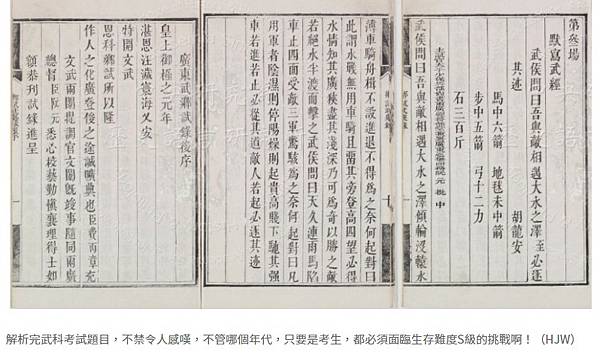 第叄場
默寫武經
武侯問曰吾與敵相遇大水之澤至必逐
其迹 胡龍安
馬中六箭 地毬未中
步中五箭 弓十二力
石三百斤
武侯問曰吾與敵相遇大水之澤傾輪没轅水
薄車騎舟楫不設進退不得爲之奈何起對曰
此謂水戰無用車騎且留其旁登高四望必得
水情知其廣狹盡其淺深乃可爲奇以勝之敵
若絕水半渡而擊之武侯問曰天久連雨馬陷
車止四面受敵三軍驚駭爲之奈何起對曰凡
用車者陰濕則停陽燥則起貴高賤下馳其强
車若進若止必從其道敵人若起必逐其迹
廣東武鄉試錄後序
皇上御極之元年
湛恩汪濊寰海乂安
特開文武
恩科鄉試所以隆
作人之化廣登俊之途誠曠典也臣費丙章充
文武兩闈提調官文闈既竣事隨同兩廣
總督臣阮元悉心校藝勤慎襄理得士如
額恭刋試錄進呈
解析完武科考試題目，不禁令人感嘆，不管哪個年代，只要是考生，都必須面臨生存難度S級的挑戰啊！（HJW）